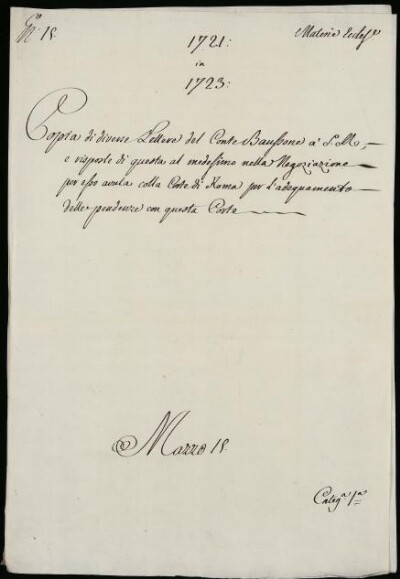 N.º 15
Materie Eccles.e
1721:
in
1723:
Copia di diverse Lettere del Conte Baussone à S. M.,
e risposte di questa al medesimo nella Negoziazione
per esso avuta colla Corte di Roma per l'adequamento
delle pendenze con questa Corte
Mazzo 15.
Categ.a 1.a